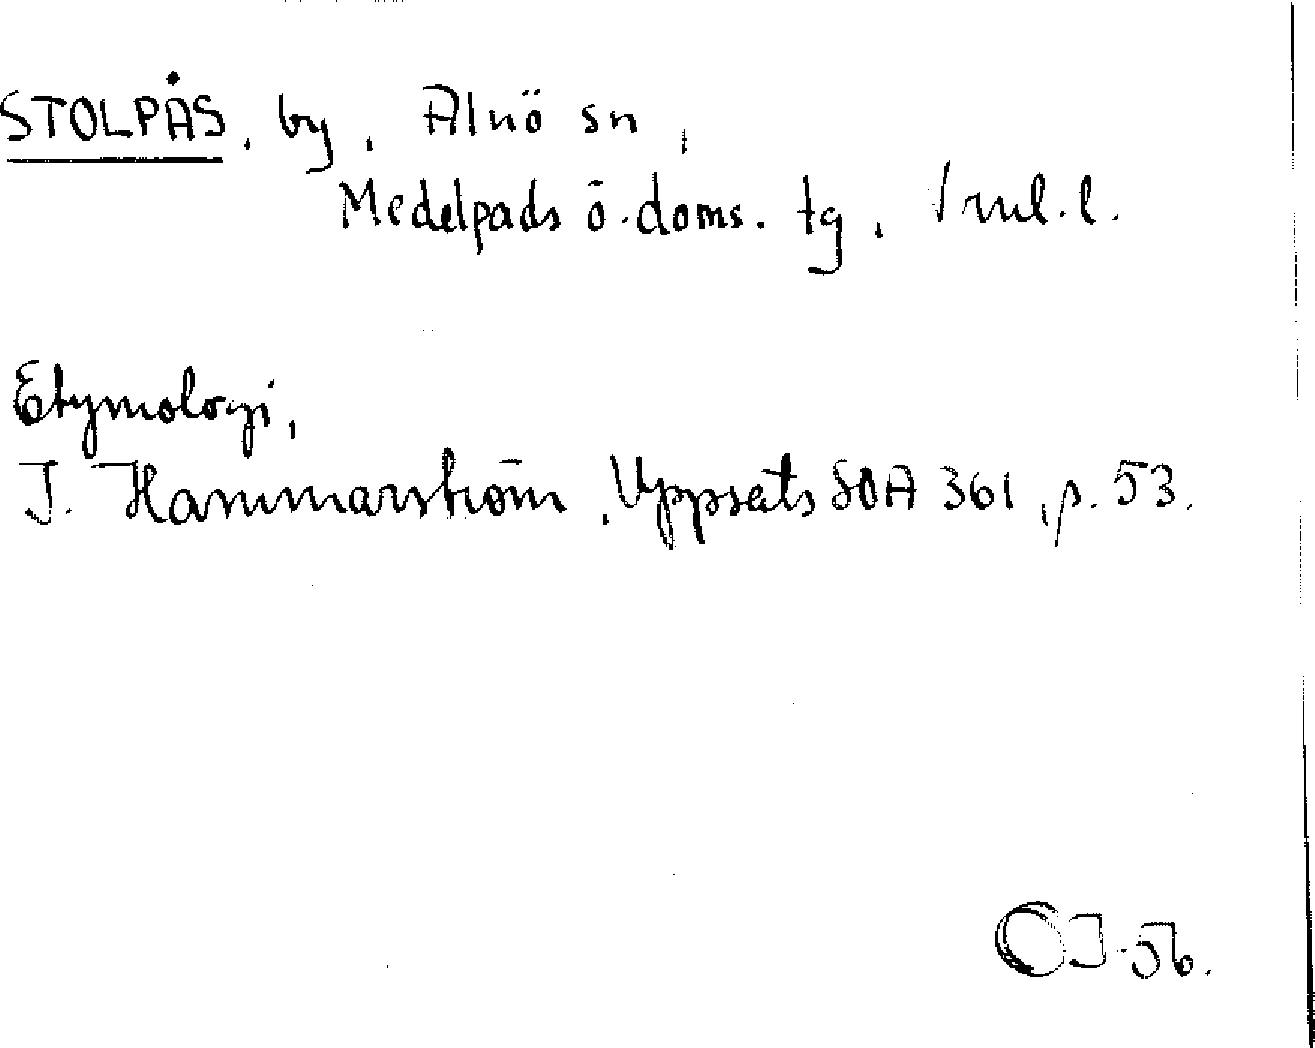 STOLPÅS, by, Alnö sn,
Medelpads ö. doms. tg, Vnl. l.
Etymologi,
J. Hammarström, Uppsats SOA 361, p. 53.
-56.